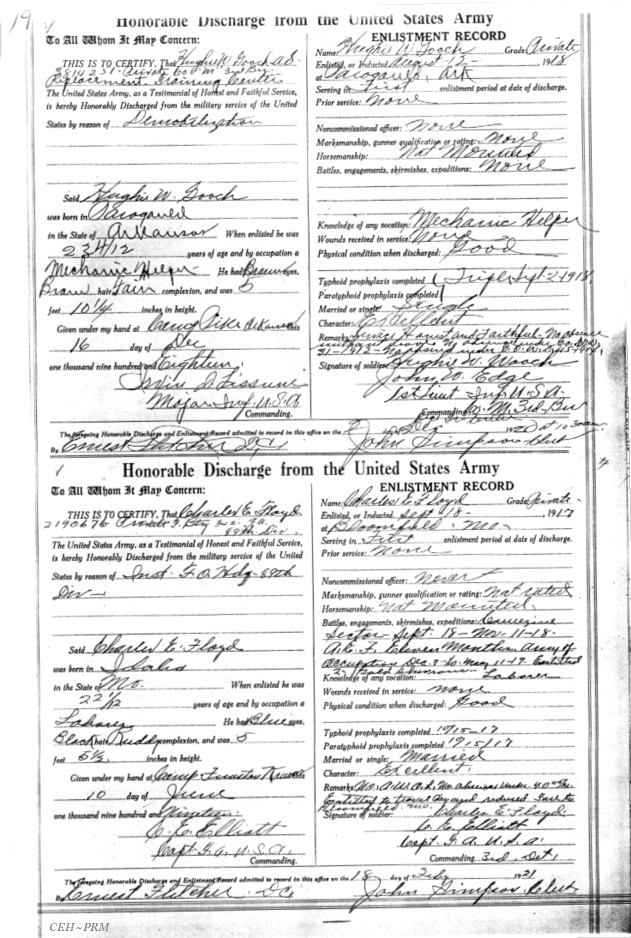 19
Honorable Discharge from the United States Army
To All Whom It May Concern:
THIS IS TO CERTIFY, That Hughie W. Gooch A.S.
Replacement Training Center
The United States Army, as a Testimonial of Honest and Faithful Service,
is hereby Honorably Discharged from the military service of the United
States by reason of Demobilization
Said Hughie W. Gooch
was born in Paragould
in the State of Arkansas When enlisted he was
23 4/12 years of age and by occupation a
Mechanic Helper He had Brown eyes,
Brown hair Fair complexion, and was 5
feet 10 1/4 inches in height.
Given under my hand at Camp Pike Arkansas this
16 day of Dec
one thousand nine hundred and Eighteen
Major Inf. U.S.A.
Commanding.
ENLISTMENT RECORD
Name: Hughie W. Gooch Grade: Private
Enlisted, or Inducted August 12- 1918
at Paragould, Ark
Serving in First enlistment period at date of discharge.
Prior service: None
Noncommissioned officer: none
Marksmanship, gunner qualification or rating: None
Horsemanship: Not Mounted
Battles, engagements, skirmishes, expeditions: None
Knowledge of any vocation: Mechanic Helper
Wounds received in service: None
Physical condition when discharged: Good
Typhoid prophylaxis completed Triple Sept 2 1918
Paratyphoid prophylaxis completed
Married or single: Single
Character: Excellent
Remarks: Service Honest and Faithful No absence
Signature of soldier: Hughie W. Gooch
John W. Edge
1st Lieut Inf U.S.A.
Commanding
The foregoing Honorable Discharge and Enlistment Record admitted to record in this office on the
Dec 1920
By Ernest Fletcher D.C. John Simpson Clerk
Honorable Discharge from the United States Army
To All Whom It May Concern:
THIS IS TO CERTIFY, That Charles E. Floyd
2190676 Private
89th Div.
The United States Army, as a Testimonial of Honest and Faithful Service,
is hereby Honorably Discharged from the military service of the United
States by reason of Inst. F.O. Hdq- 89th
Div-
Said Charles E. Floyd
was born in Idalia
in the State of Mo. When enlisted he was
22 1/12 years of age and by occupation a
Laborer He had Blue eyes,
Black hair Ruddy complexion, and was 5
feet 5 1/2 inches in height.
Given under my hand at Camp Funston Kansas this
10 day of June
one thousand nine hundred and Nineteen
C. E. Elliott
Capt. F.A. U.S.A.
Commanding.
ENLISTMENT RECORD
Name: Charles E. Floyd Grade: Private-
Enlisted, or Inducted, Sept 18- 1917
at Bloomfield- Mo-
Serving in First enlistment period at date of discharge.
Prior service: None
Noncommissioned officer: Never
Marksmanship, gunner qualification or rating: Not rated
Horsemanship: Not Mounted.
Battles, engagements, skirmishes, expeditions:
Sector Sept. 18- Nov. 11-18.
A.E.F. Eleven Months Army of
Occupation Entitled
Knowledge of any vocation: Laborer
Wounds received in service: none
Physical condition when discharged: Good
Typhoid prophylaxis completed 10/15-17
Paratyphoid prophylaxis completed 10/15/17
Married or single: Married
Character: Excellent.
Remarks: No A.W.O.L. No absence under
Entitled to travel pay and reduced fare to
Bloomfield, Mo.
Signature of soldier: Charles E. Floyd
C. E. Elliott
Capt. F.A. U.S.A.
Commanding 3rd. Det.
The foregoing Honorable Discharge and Enlistment Record admitted to record in this office on the 18 day of Feby 1921
By Ernest Fletcher D.C. John Simpson Clerk
CEH~PRM